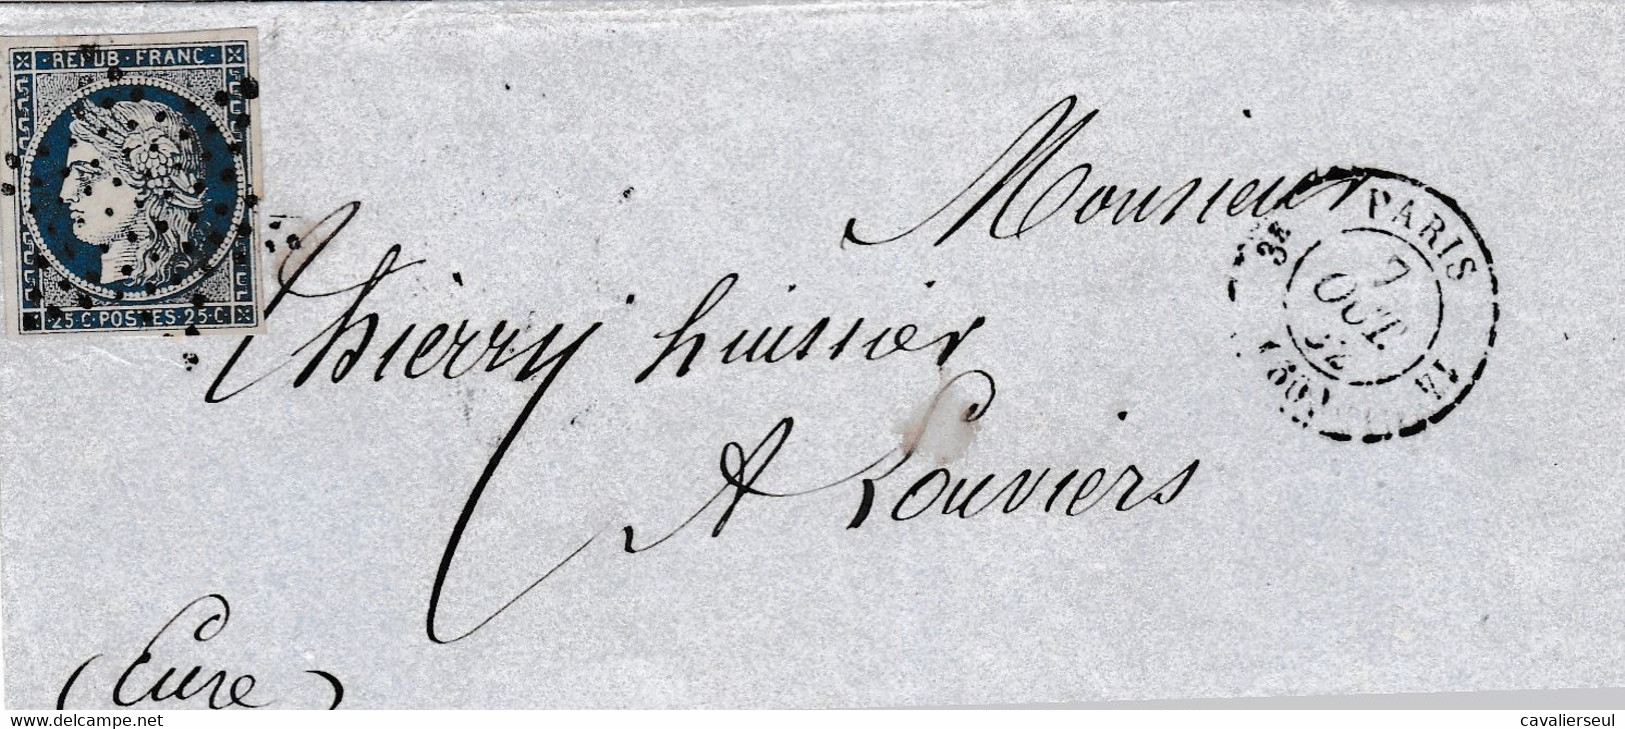 REPUB·FRANC·
25·C·POSTES·25·C·
Monsieur
Thierry huissier
A Louviers
(Eure)
PARIS
3E
7
OCT.
52
(60)
www.delcampe.net
cavalierseul